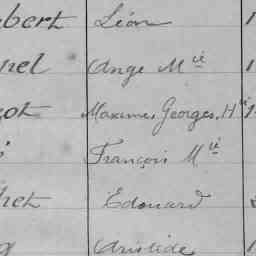 bert Léon 1
nel Ange M^ie 1
ot Maxime, Georges, H^ri 1
François M^ie
het Edouard
Aristide 1